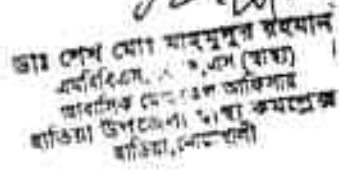 ডাঃ শেখ মোঃ মাহমুদুর রহমান
এমবিবিএস, এম (স্বাস্থ্য)
আবাসিক মেডিকেল অফিসার
হাতিয়া উপজেলা স্বাস্থ্য কমপ্লেক্স
হাতিয়া, নোয়াখালী